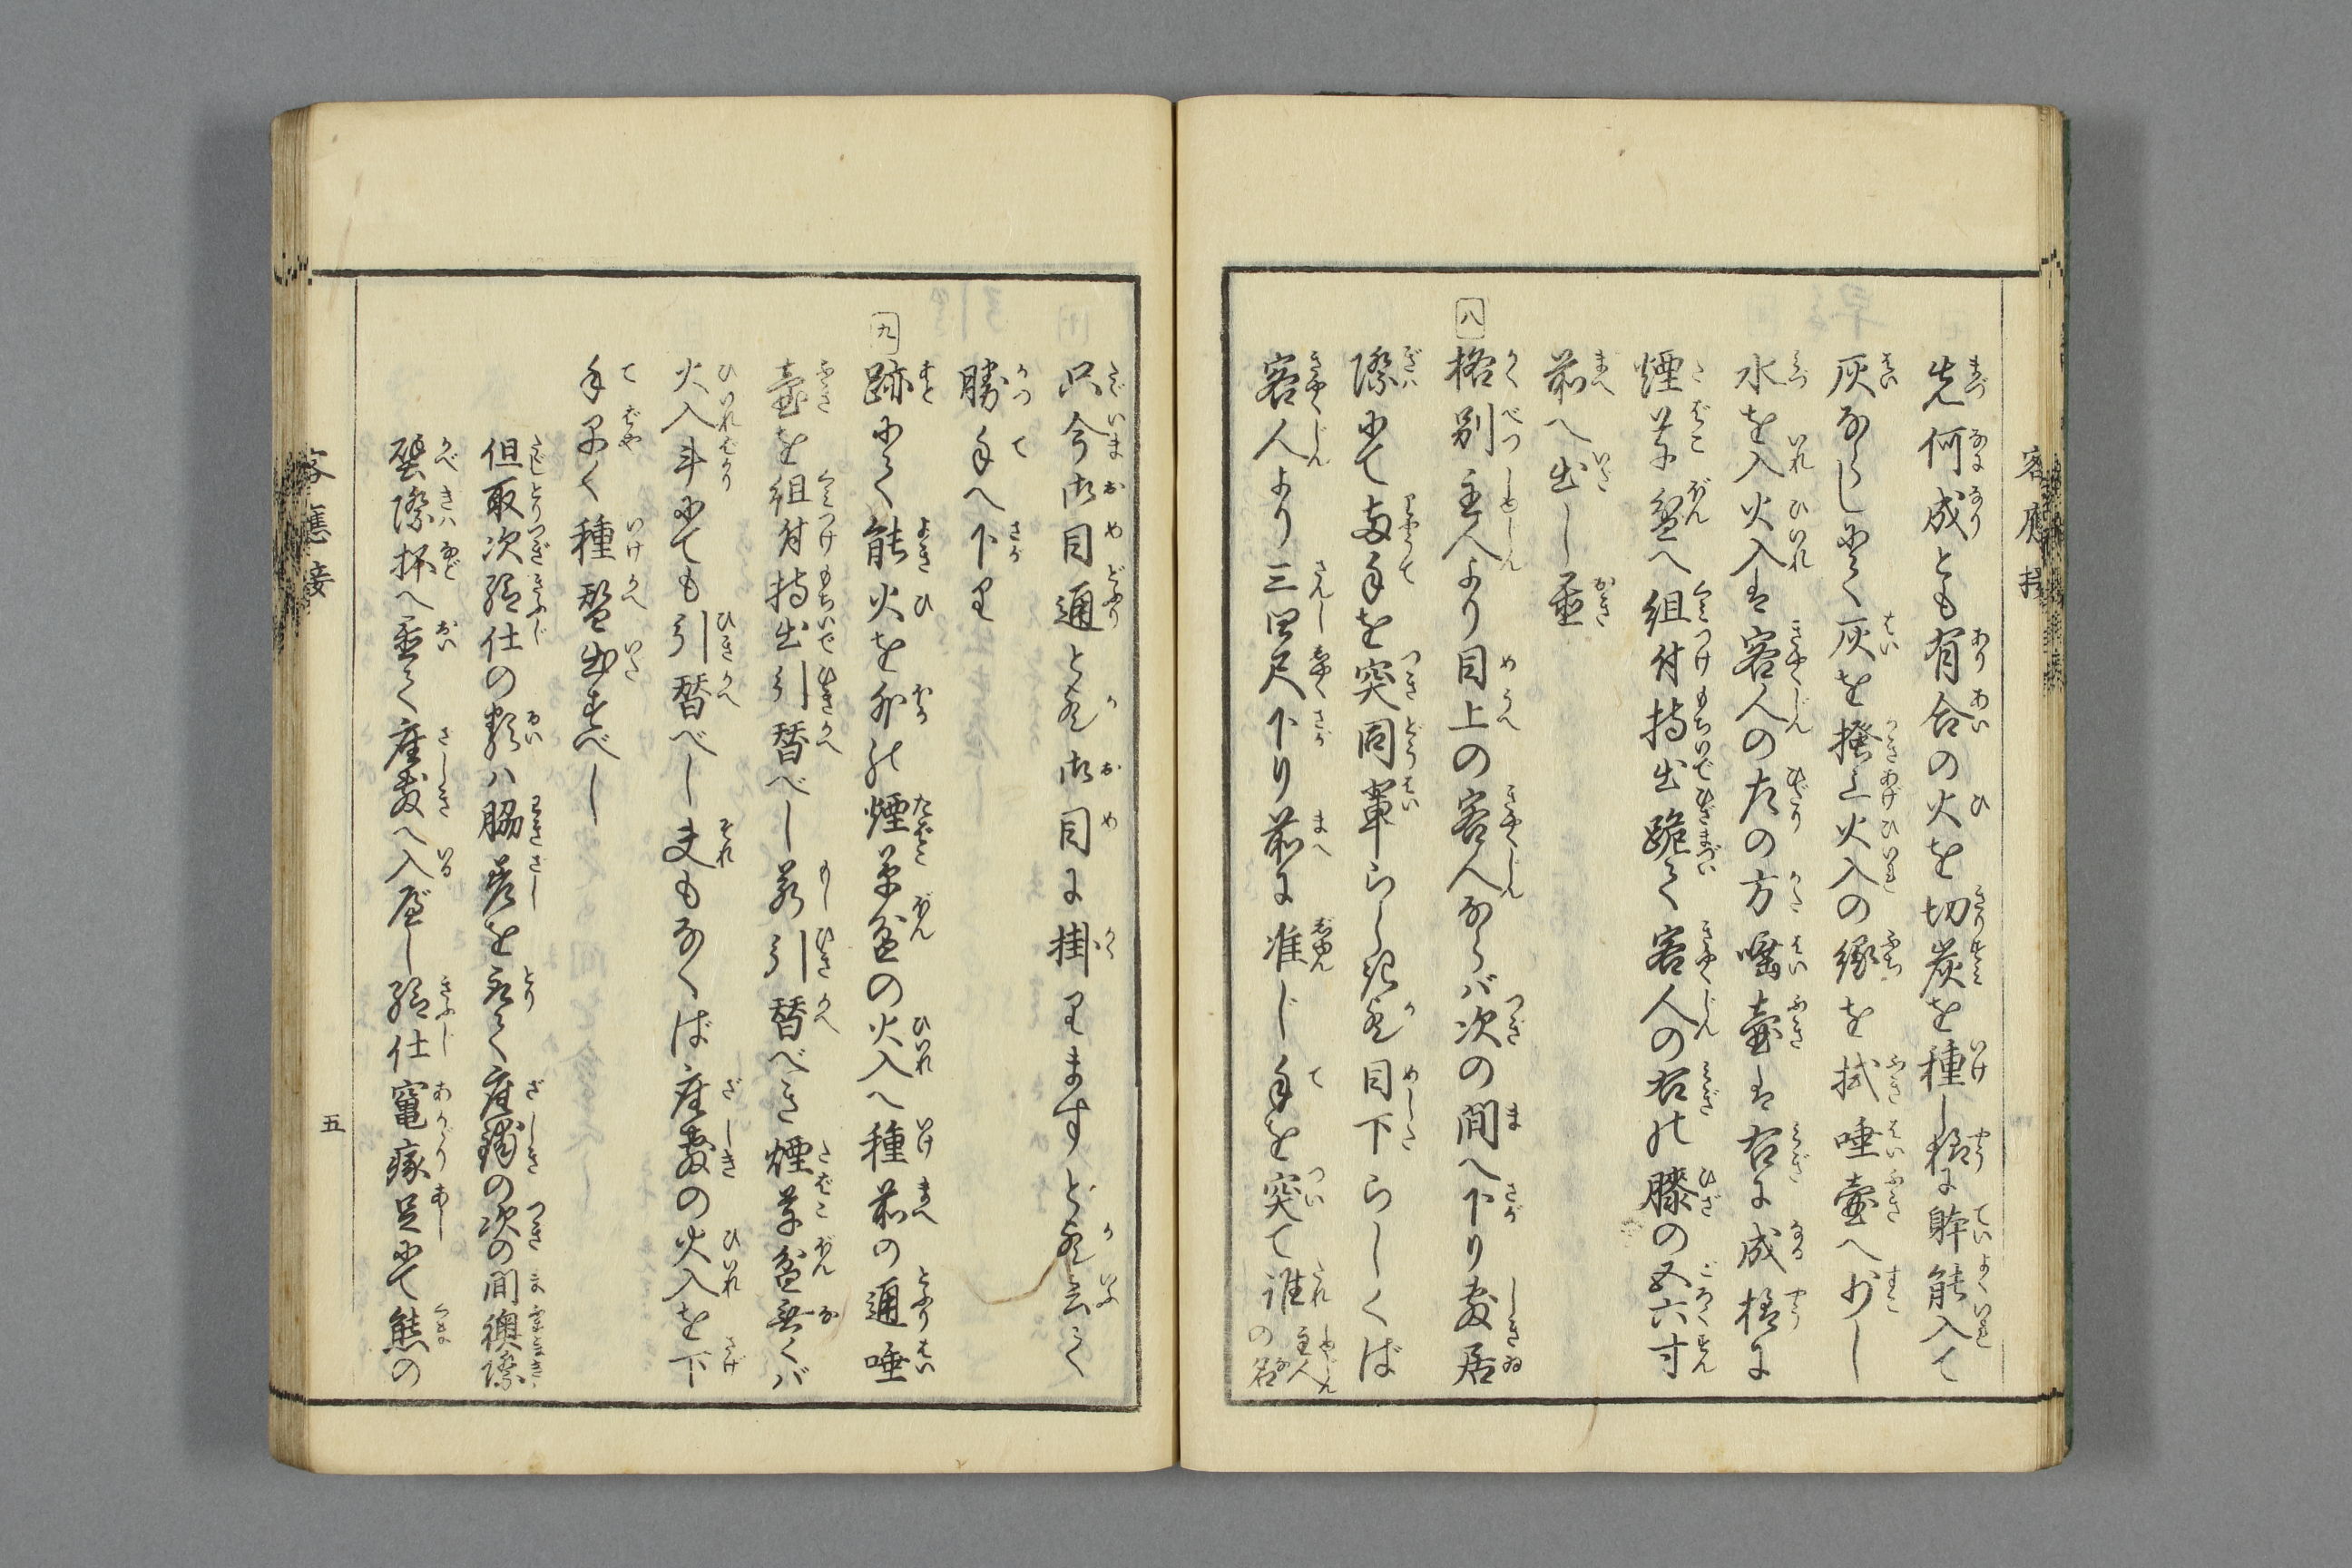 先何成とも有合の火を切炭を種し様に躰能入て
灰ならしにて灰を撥上火入の縁を拭唾壷へ少し
水を入火入は客人の左の方唾壷は右に成様に
煙草盆へ組付持出跪て客人の右の膝の五六寸
前へ出し置
八
格別主人より目上の客人ならバ次の間へ下り敷居
際にて両手を突同輩らしき歟目下らしくば
客人より三四尺下り前に准じ手を突て誰主人の名
只今御目通と歟御目に掛りますと歟云て
勝手へ下り
九
跡にて能火を外の煙草盆の火入へ種前の通唾
壷を組付持出引替べし若引替べき煙草盆無くバ
火入斗にても引替べし夫もなくば座敷の火入を下
手早く種替出すべし
但取次給仕の類ハ脇差を取て座鋪の次の間襖際
壁際抔へ置て座敷へ入べし給仕竈瘃足にて熊の
客應接
五